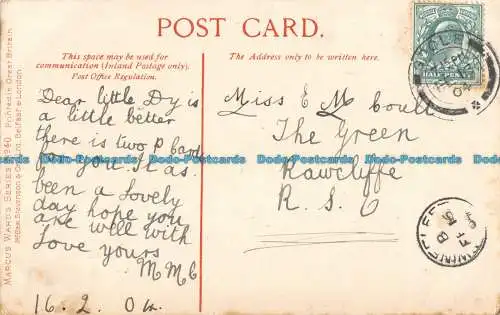 POST CARD.
This space may be used for
communication (Inland Postage only).
Post Office Regulation.
The Address only to be written here.
Dear little Dy is
a little better
there is two p card
for you. It as
been a lovely
day hope you
are well with
love yours
M M C
16. 2. 04.
Miss E M Coull
The Green
Rawcliffe
R. S. O
HALF PENNY
MARCUS WARD'S SERIES
Printed in Great Britain
Belfast & London
Dodo-Postcards Dodo-Postcards Dodo-Postcards Dodo-Postcards Dodo-Postcards